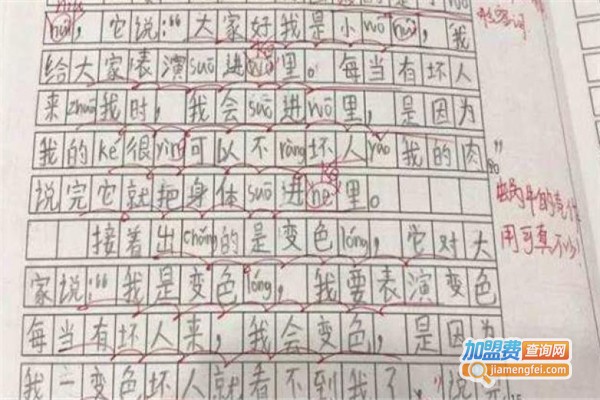 huī，它说：“大家好我是小wō huí，我
给大家表演suō进里。每当有坏人
来zhuō我时，我会suō进wō里，是因为
我的ké很yìng可以不ràng坏人yǎo我的肉”
说完它就把身体suō进里。
接着出chǎng的是变色lóng，它对大
家说：“我是变色lóng，我要表演变色
每当有坏人来，我会变色，是因为
我一变色坏人就看不到我了。”说完
ké
ké
蜗牛的壳作
用可真不少！
加盟费查询网
jiamengfei.com